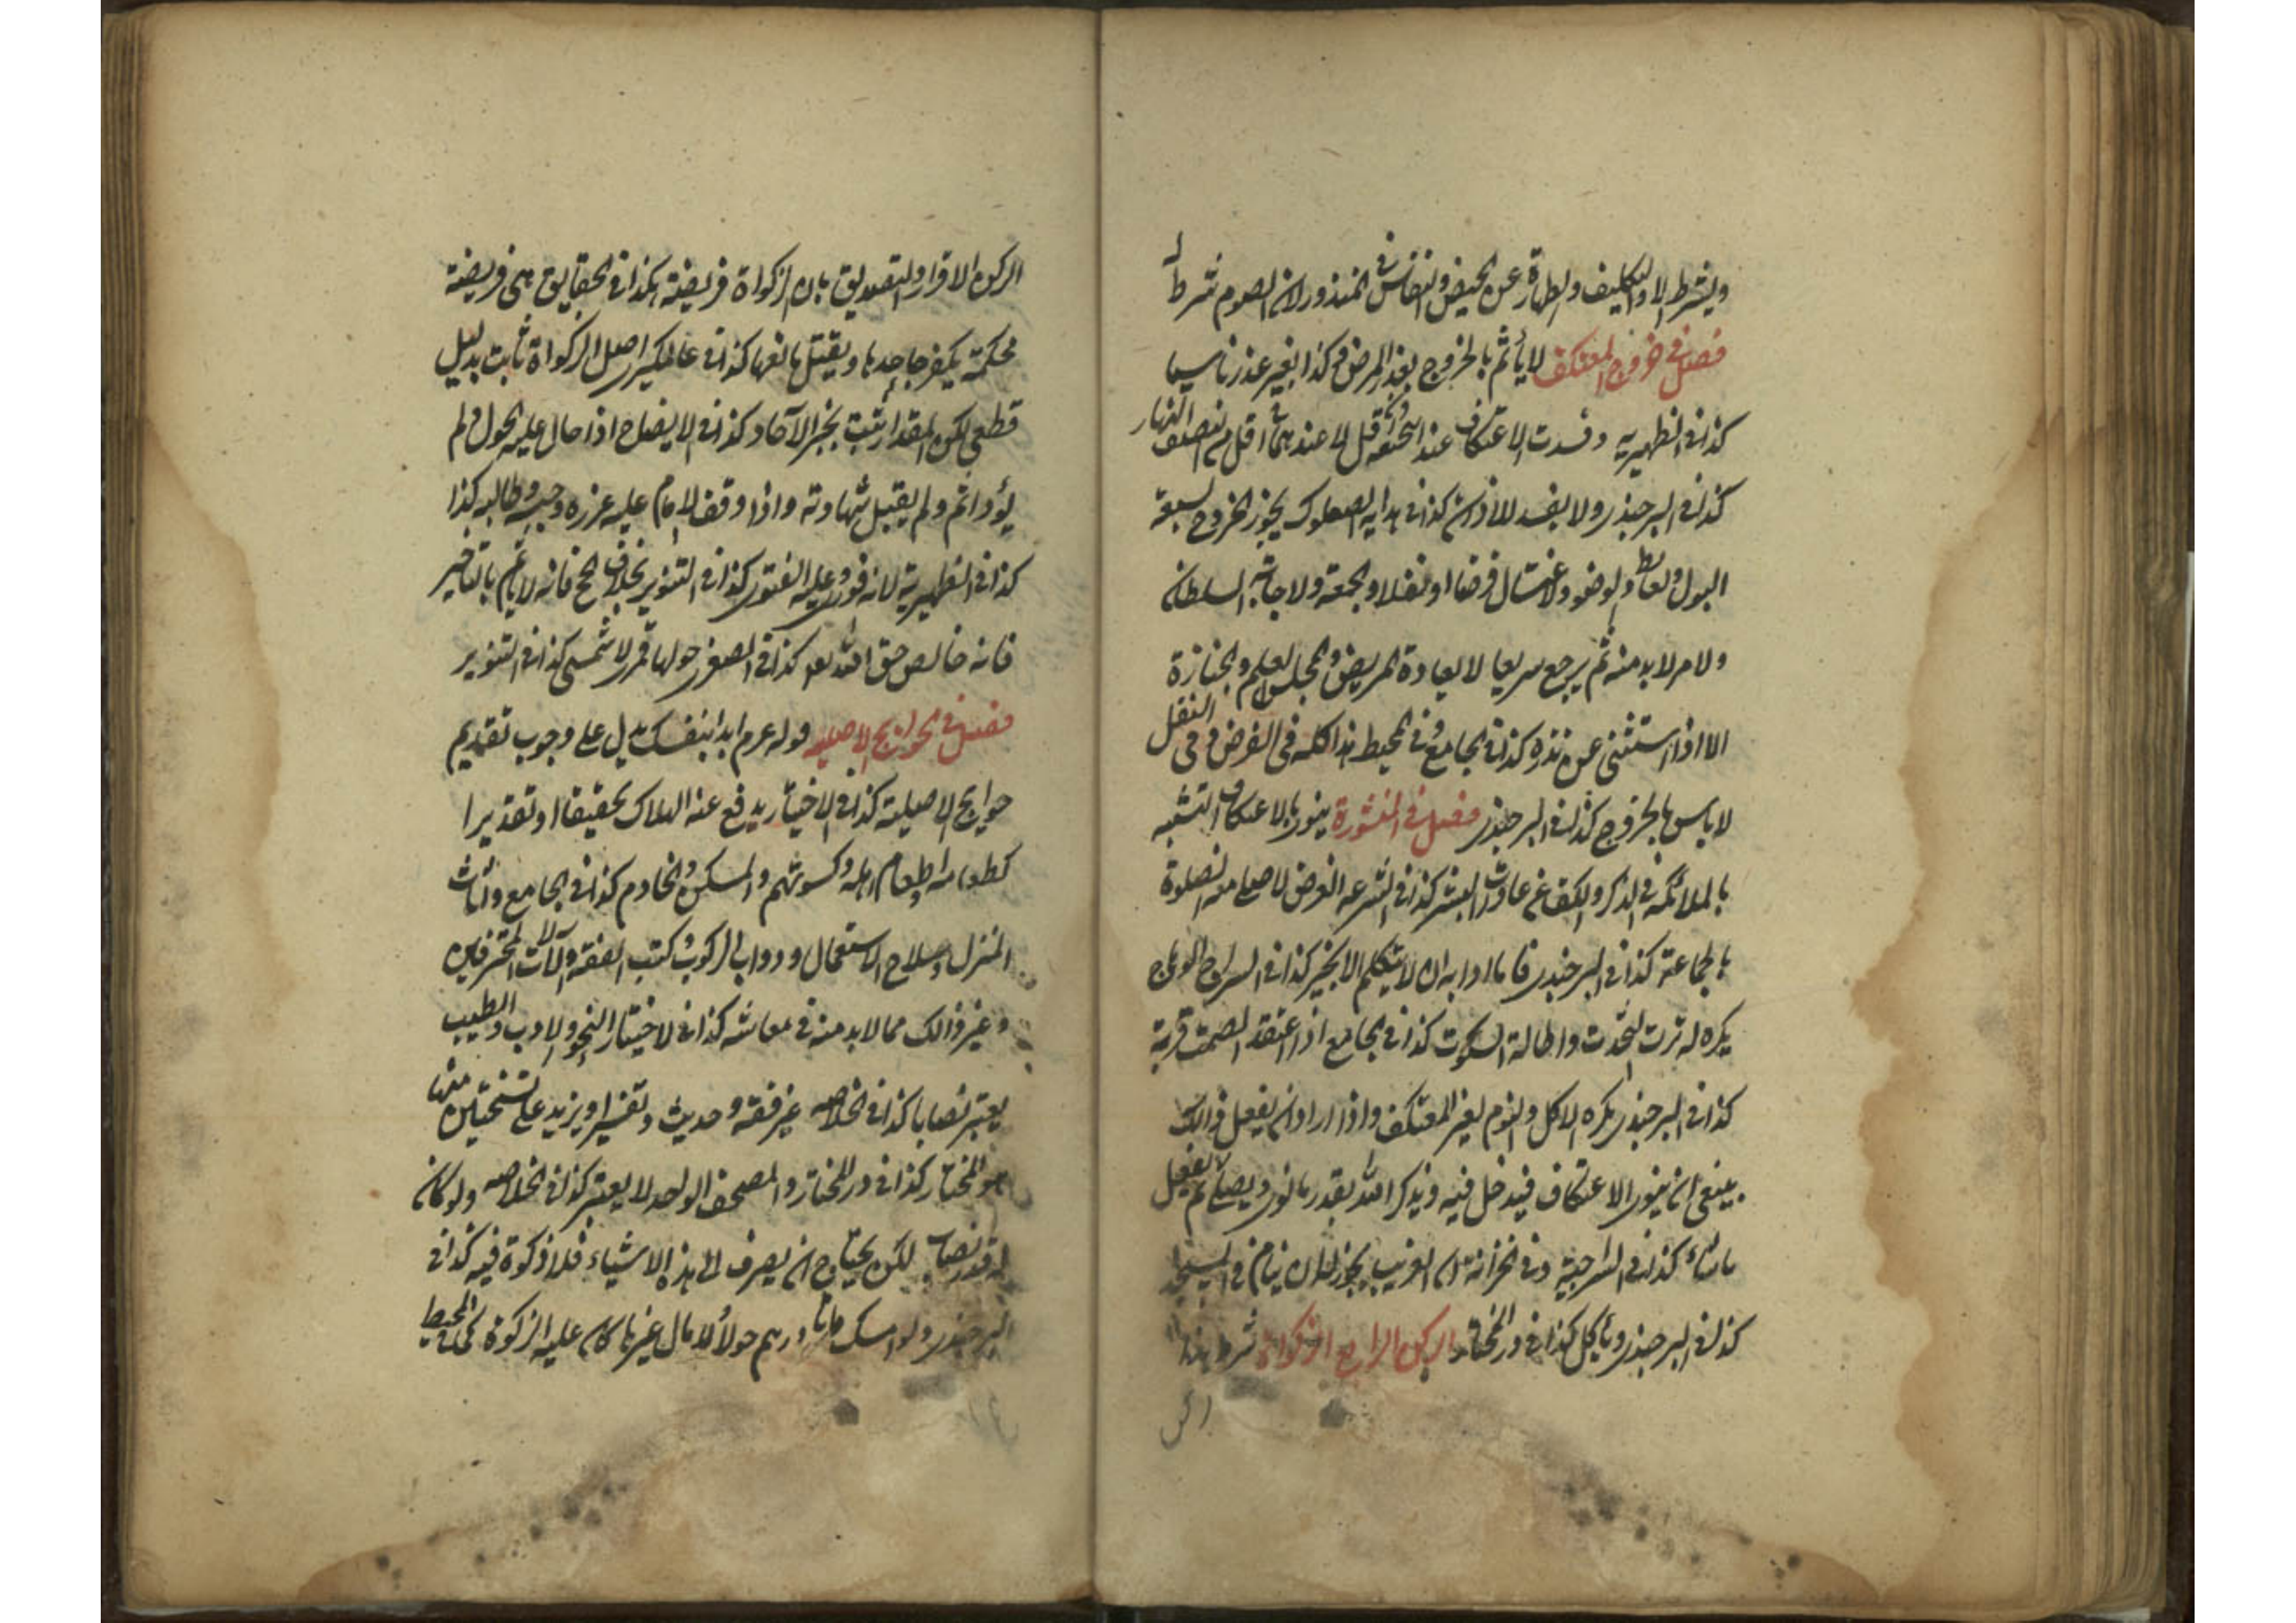 ويشترط الاول التكليف والطهارة عن الحيض والنفاس في المنذور لان الصوم شرط له
فصل في خروج المعتكف لا يأثم بالخروج بعذر المرض وكذا بغير عذر ناسيا
كذا في الظهيرية وفسدت الاعتكاف عنده قل لا عندهما اقل من نصف النهار
كذا في البرجندي ولا يفسد للاذان كذا في هدايه الصعلوك يجوز الخروج لسبعة
البول والغائط والوضو والاغتسال فرضا او نفلا والجمعة ولاجابة السلطان
ولامر لابد منه ثم يرجع سريعا لا لعيادة المريض والمجلس العلم والجنازة
الا اذا استثنى عن نذره كذا في الجامع وفي المحيط هذا كله في الفرض وفي النفل
لاباس بالخروج كذا في البرجندي فصل في المنشورة ينوي بالاعتكاف التشبه
بالملائكة في الذكر والكف عن عادات البشر كذا في الشرعه الغرض لاصلي معه الصلوة
بالجماعة كذا في البرجندي فاما ادابه ان لا يتكلم الا بخير كذا في السراج الوهاج
يكره له ترت التحدث واطالة السكوت كذا في الجامع اذا اعتقد الصمت قربة
كذا في البرجندي يكره الاكل والنوم لغير المعتكف واذا اراد ان يفعل ذالك
ينبغي ان ينوي الاعتكاف فيدخل فيه ويذكر الله بقدر ما نوى ويصلي ثم يفعل
ماشاء كذا في السراجية وفي الخزانة ان الغريب يجوز له ان ينام في المسجد
كذا في البرجندي ويأكل كذا في در المختار الركن الرابع الزكواة شرط هذا
الركن
الركن الاقرار والتصديق بان الزكواة فريضة هكذا في الحقايق هي فريضة
محكمة يكفر جاحدها ويقتل مانعها كذا في عالمكيري اصل الزكواة ثابت بدليل
قطعي لكن المقدار ثبت بخبر الآحاد كذا في الايضاح اذا حال عليه الحول ولم
يؤد اثم ولم يقبل شهادته واذا وقف الامام عليه عزره وحبسه وطالبه كذا
كذا في الظهيرية لانه فوري وعليه الفتوى كذا في التنوير بخلاف الحج فانه لا ياثم بالتاخير
فانه خالص حق الله تعه كذا في الصغرى حولها قمري لا شمسي كذا في التنوير
فصل في الحوايج الاصلية قوله عرم ابدا بنفسك يدل على وجوب تقديم
حوايج الاصيلة كذا في الاختيار يدفع عنه الهلاك تحقيقا او تقديرا
كطعامه وطعام اهله وكسوتهم والمسكن والخادم كذا في الجامع واثاث
المنزل وسلاح الاستعمال ودواب الركوب وكتب الفقه وآلات المحترفين
وغير ذالك مما لابد منه في معاشه كذا في الاختيار النحو والادب والطبيب
يعتبر نصابا كذا في الخلاصه غير فقه وحديث وتفسير ويزيد على نسختين منها
هو المختار كذا في در المختار والمصحف الواحد لا يعتبر كذا في الخلاصه ولو كان
له قدر نصاب لكن يحتاج ان يصرف الى هذه الاشياء فلا زكوة فيه كذا في
البرجندي ولو امسك مائتا درهم حولا لا مال غيرها كان عليه الزكوة كما في المحيط